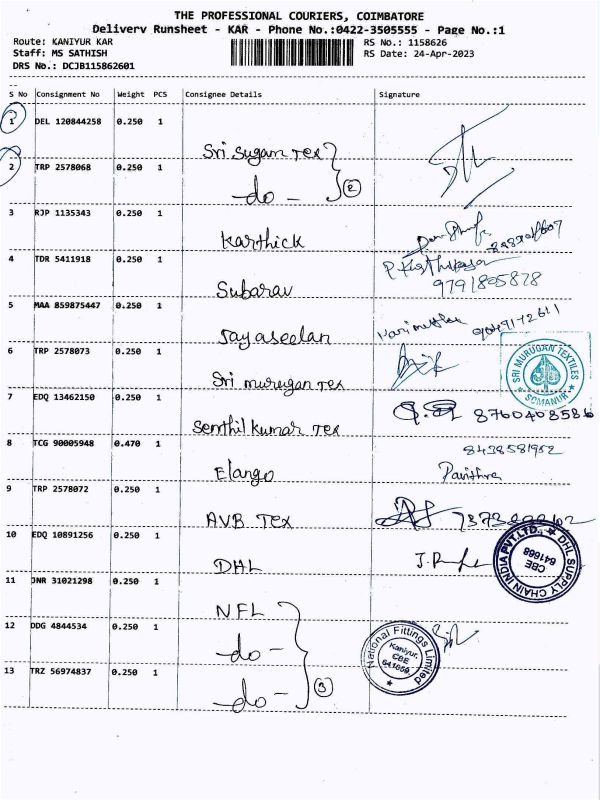 THE PROFESSIONAL COURIERS, COIMBATORE
Delivery Runsheet - KAR - Phone No.:0422-3505555 - Page No.:1
Route: KANIYUR KAR RS No.: 1158626
Staff: MS SATHISH RS Date: 24-Apr-2023
DRS No.: DCJB115862601
S No Consignment No Weight PCS Consignee Details Signature
1 DEL 120844258 0.250 1
Sri Sugam Tex
2 TRP 2578068 0.250 1
-do- 2
3 RJP 1135343 0.250 1
Karthick
4 TDR 5411918 0.250 1
Subarav 9791805828
5 MAA 859875447 0.250 1
Jayaseelan
6 TRP 2578073 0.250 1
Sri murugan Tex
SRI MURUGAN TEXTILES
SOMANUR
7 EDQ 13462150 0.250 1
Senthil kumar Tex 8760408586
8 TCG 90005948 0.470 1 8438581952
Elango Pavithra
9 TRP 2578072 0.250 1
AVB Tex
10 EDQ 10891256 0.250 1
DHL
DHL SUPPLY CHAIN INDIA PVT.LTD.
CBE
641668
11 JNR 31021298 0.250 1
NFL
12 DDG 4844534 0.250 1
-do-
National Fittings Limited
Kaniyur,
CBE
13 TRZ 56974837 0.250 1
-do- 3